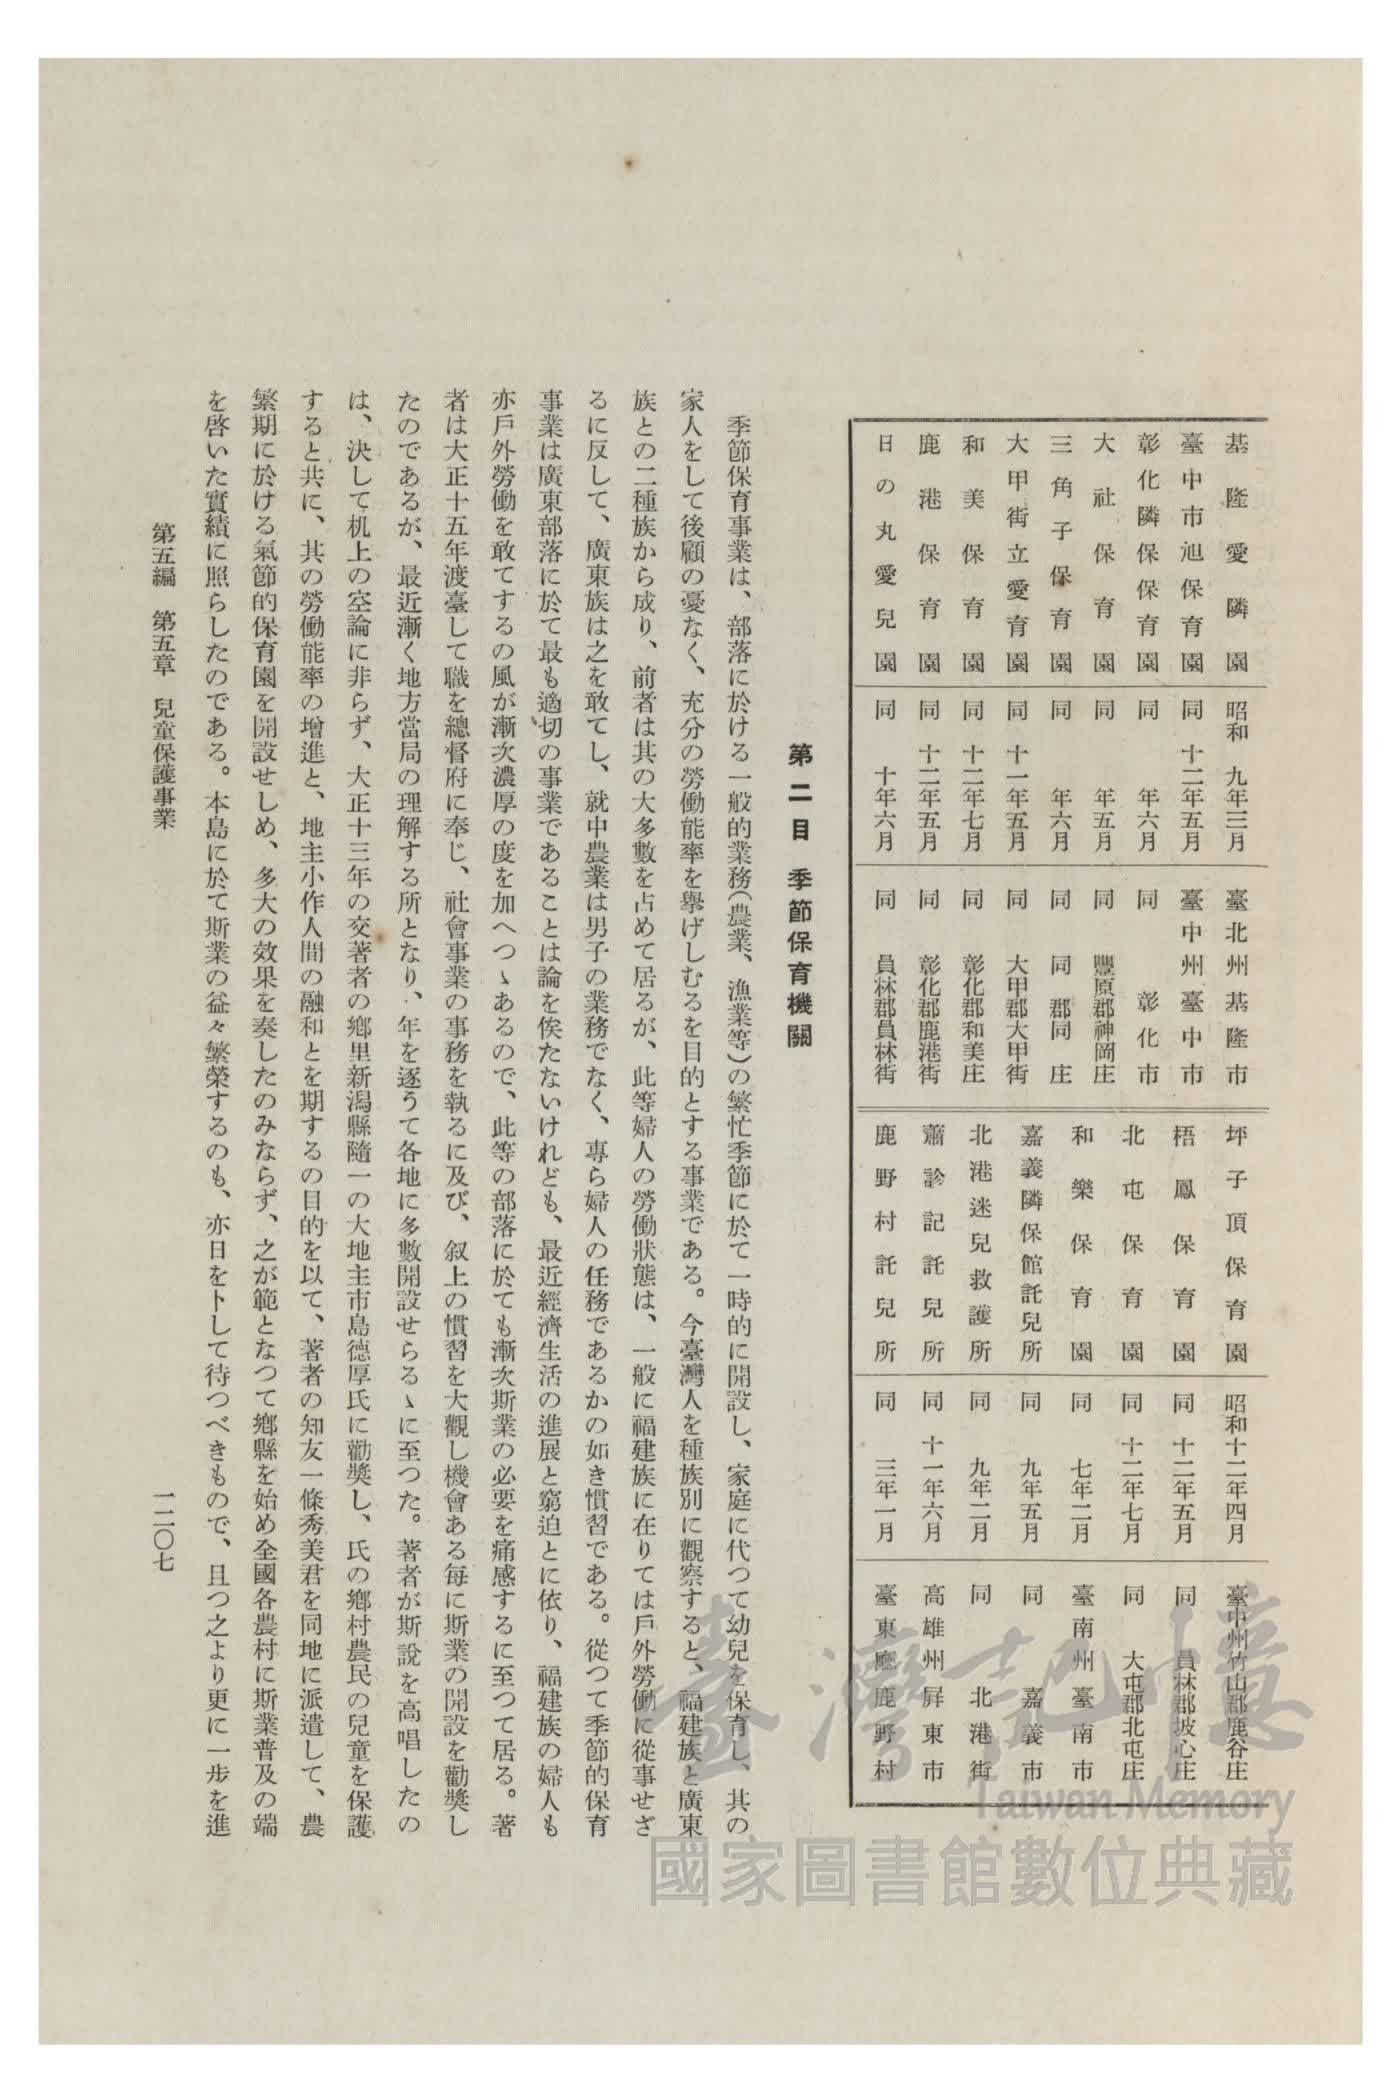 基隆愛隣園 昭和 九年三月 臺北州基隆市
臺中市旭保育園 同 十二年五月 臺中州臺中市
彰化隣保保育園 同 年六月 同 彰化市
大社保育園 同 年五月 同 豐原郡神岡庄
三角子保育園 同 年六月 同 同郡同庄
大甲街立愛育園 同 十一年五月 同 大甲郡大甲街
和美保育園 同 十二年七月 同 彰化郡和美庄
鹿港保育園 同 十二年五月 同 彰化郡鹿港街
日の丸愛兒園 同 十年六月 同 員林郡員林街
坪子頂保育園 昭和十二年四月 臺中州竹山郡鹿谷庄
梧鳳保育園 同 十二年五月 同 員林郡坡心庄
北屯保育園 同 十二年七月 同 大屯郡北屯庄
和樂保育園 同 七年二月 臺南州臺南市
嘉義隣保館託兒所 同 九年五月 同 嘉義市
北港迷兒救護所 同 九年二月 同 北港街
蕭診記託兒所 同 十一年六月 高雄州屛東市
鹿野村託兒所 同 三年一月 臺東廳鹿野村
第二目 季節保育機關
季節保育事業は、部落に於ける一般的業務(農業、漁業等)の繁忙季節に於て一時的に開設し、家庭に代つて幼兒を保育し、其の
家人をして後顧の憂なく、充分の勞働能率を擧げしむるを目的とする事業である。今臺灣人を種族別に觀察すると、福建族と廣東
族との二種族から成り、前者は其の大多數を占めて居るが、此等婦人の勞働狀態は、一般に福建族に在りては戶外勞働に從事せざ
るに反して、廣東族は之を敢てし、就中農業は男子の業務でなく、專ら婦人の任務であるかの如き慣習である。從つて季節的保育
事業は廣東部落に於て最も適切の事業であることは論を俟たないけれども、最近經濟生活の進展と窮迫とに依り、福建族の婦人も
亦戶外勞働を敢てするの風が漸次濃厚の度を加へつゝあるので、此等の部落に於ても漸次斯業の必要を痛感するに至つて居る。著
者は大正十五年渡臺して職を總督府に奉じ、社會事業の事務を執るに及び、叙上の慣習を大觀し機會ある每に斯業の開設を勸奬し
たのであるが、最近漸く地方當局の理解する所となり、年を逐うて各地に多數開設せらるゝに至つた。著者が斯說を高唱したの
は、決して机上の空論に非らず、大正十三年の交著者の鄕里新潟縣隨一の大地主市島德厚氏に勸奬し、氏の鄕村農民の兒童を保護
すると共に、其の勞働能率の增進と、地主小作人間の融和とを期するの目的を以て、著者の知友一條秀美君を同地に派遣して、農
繁期に於ける氣節的保育園を開設せしめ、多大の效果を奏したのみならず、之が範となつて鄕縣を始め全國各農村に斯業普及の端
を啓いた實績に照らしたのである。本島に於て斯業の益々繁榮するのも、亦日を卜して待つべきもので、且つ之より更に一步を進
第五編 第五章 兒童保護事業 一二〇七
臺灣記憶
Taiwan Memory
國家圖書館數位典藏